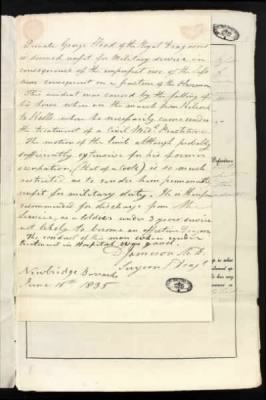 Private George Hood of the Royal Dragoons
is deemed unfit for Military service in
consequence of the imperfect use of the left
arm consequent on a fracture of the Humerus
This accident was caused by the falling of
his horse when on the march from
to Kells when he necessarily came under
the treatment of a Civil Medl Practitioner
The motion of the limb although probably
sufficiently extensive for his former
occupation (that of a ) is so much
restricted as to render him permanently
unfit for military duty. He is therefore
recommended for discharge from the
Service, as a soldier under 3 years service
not likely to become an effective Dragoon
The conduct of this man when under
treatment in Hospital was good.
Jameson M.D.
Surgeon Drags
Newbridge Barracks
June 16th 1835